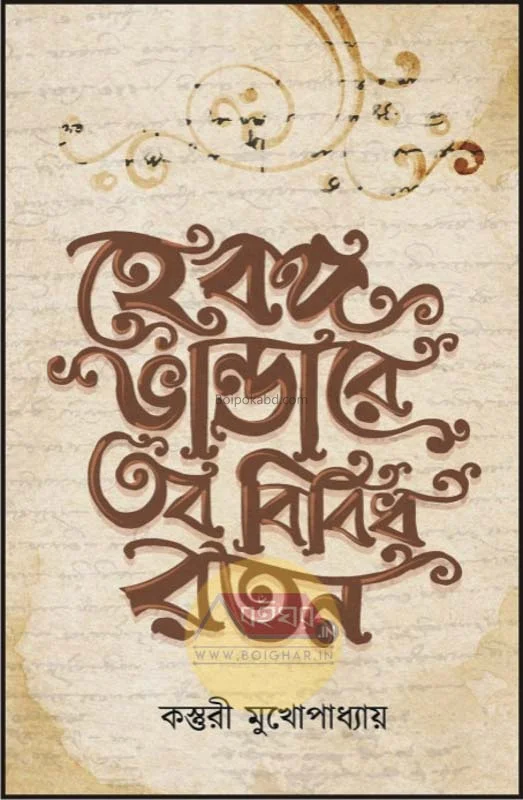 হে বঙ্গ
ভান্ডারে
boipokabd.com
তব বিবিধ
রতন
বইঘর.IN
WWW.BOIGHAR.IN
কস্তুরী মুখোপাধ্যায়